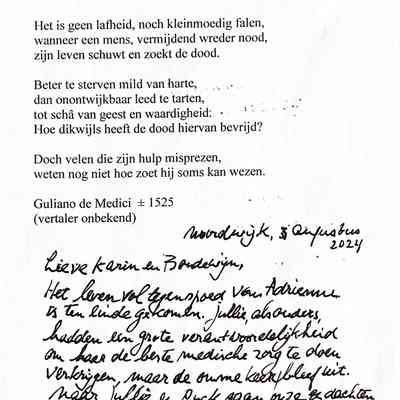 Het is geen lafheid, noch kleinmoedig falen,
wanneer een mens, vermijdend wreder nood,
zijn leven schuwt en zoekt de dood.
Beter te sterven mild van harte,
dan onontwijkbaar leed te tarten,
tot schâ van geest en waardigheid:
Hoe dikwijls heeft de dood hiervan bevrijd?
Doch velen die zijn hulp misprezen,
weten nog niet hoe zoet hij soms kan wezen.
Guliano de Medici ± 1525
(vertaler onbekend)
Noordwijk, augustus
2024
Lieve Karin en Boudewijn,
Het leven vol tegenspoed van Adrienne
is ten einde gekomen. Jullie, als ouders,
hadden een grote verantwoordelijkheid
om haar de beste medische zorg te doen
verkrijgen, maar de bleef uit.
naar jullie gaan onze gedachten